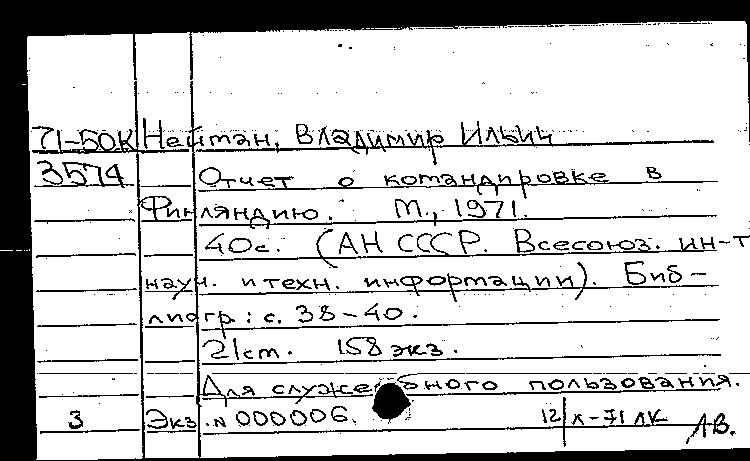 71-50К Нейман, Владимир Ильич
3574 Отчет о командировке в
Финляндию. М., 1971.
40с. (АН СССР. Всесоюз. ин-т
науч. и техн. информации). Биб-
лиогр: с. 38-40.
21cm. 158 экз.
Для служебного пользования.
3 Экз. N 000006. 12 Х-71 ЛК ЛВ.